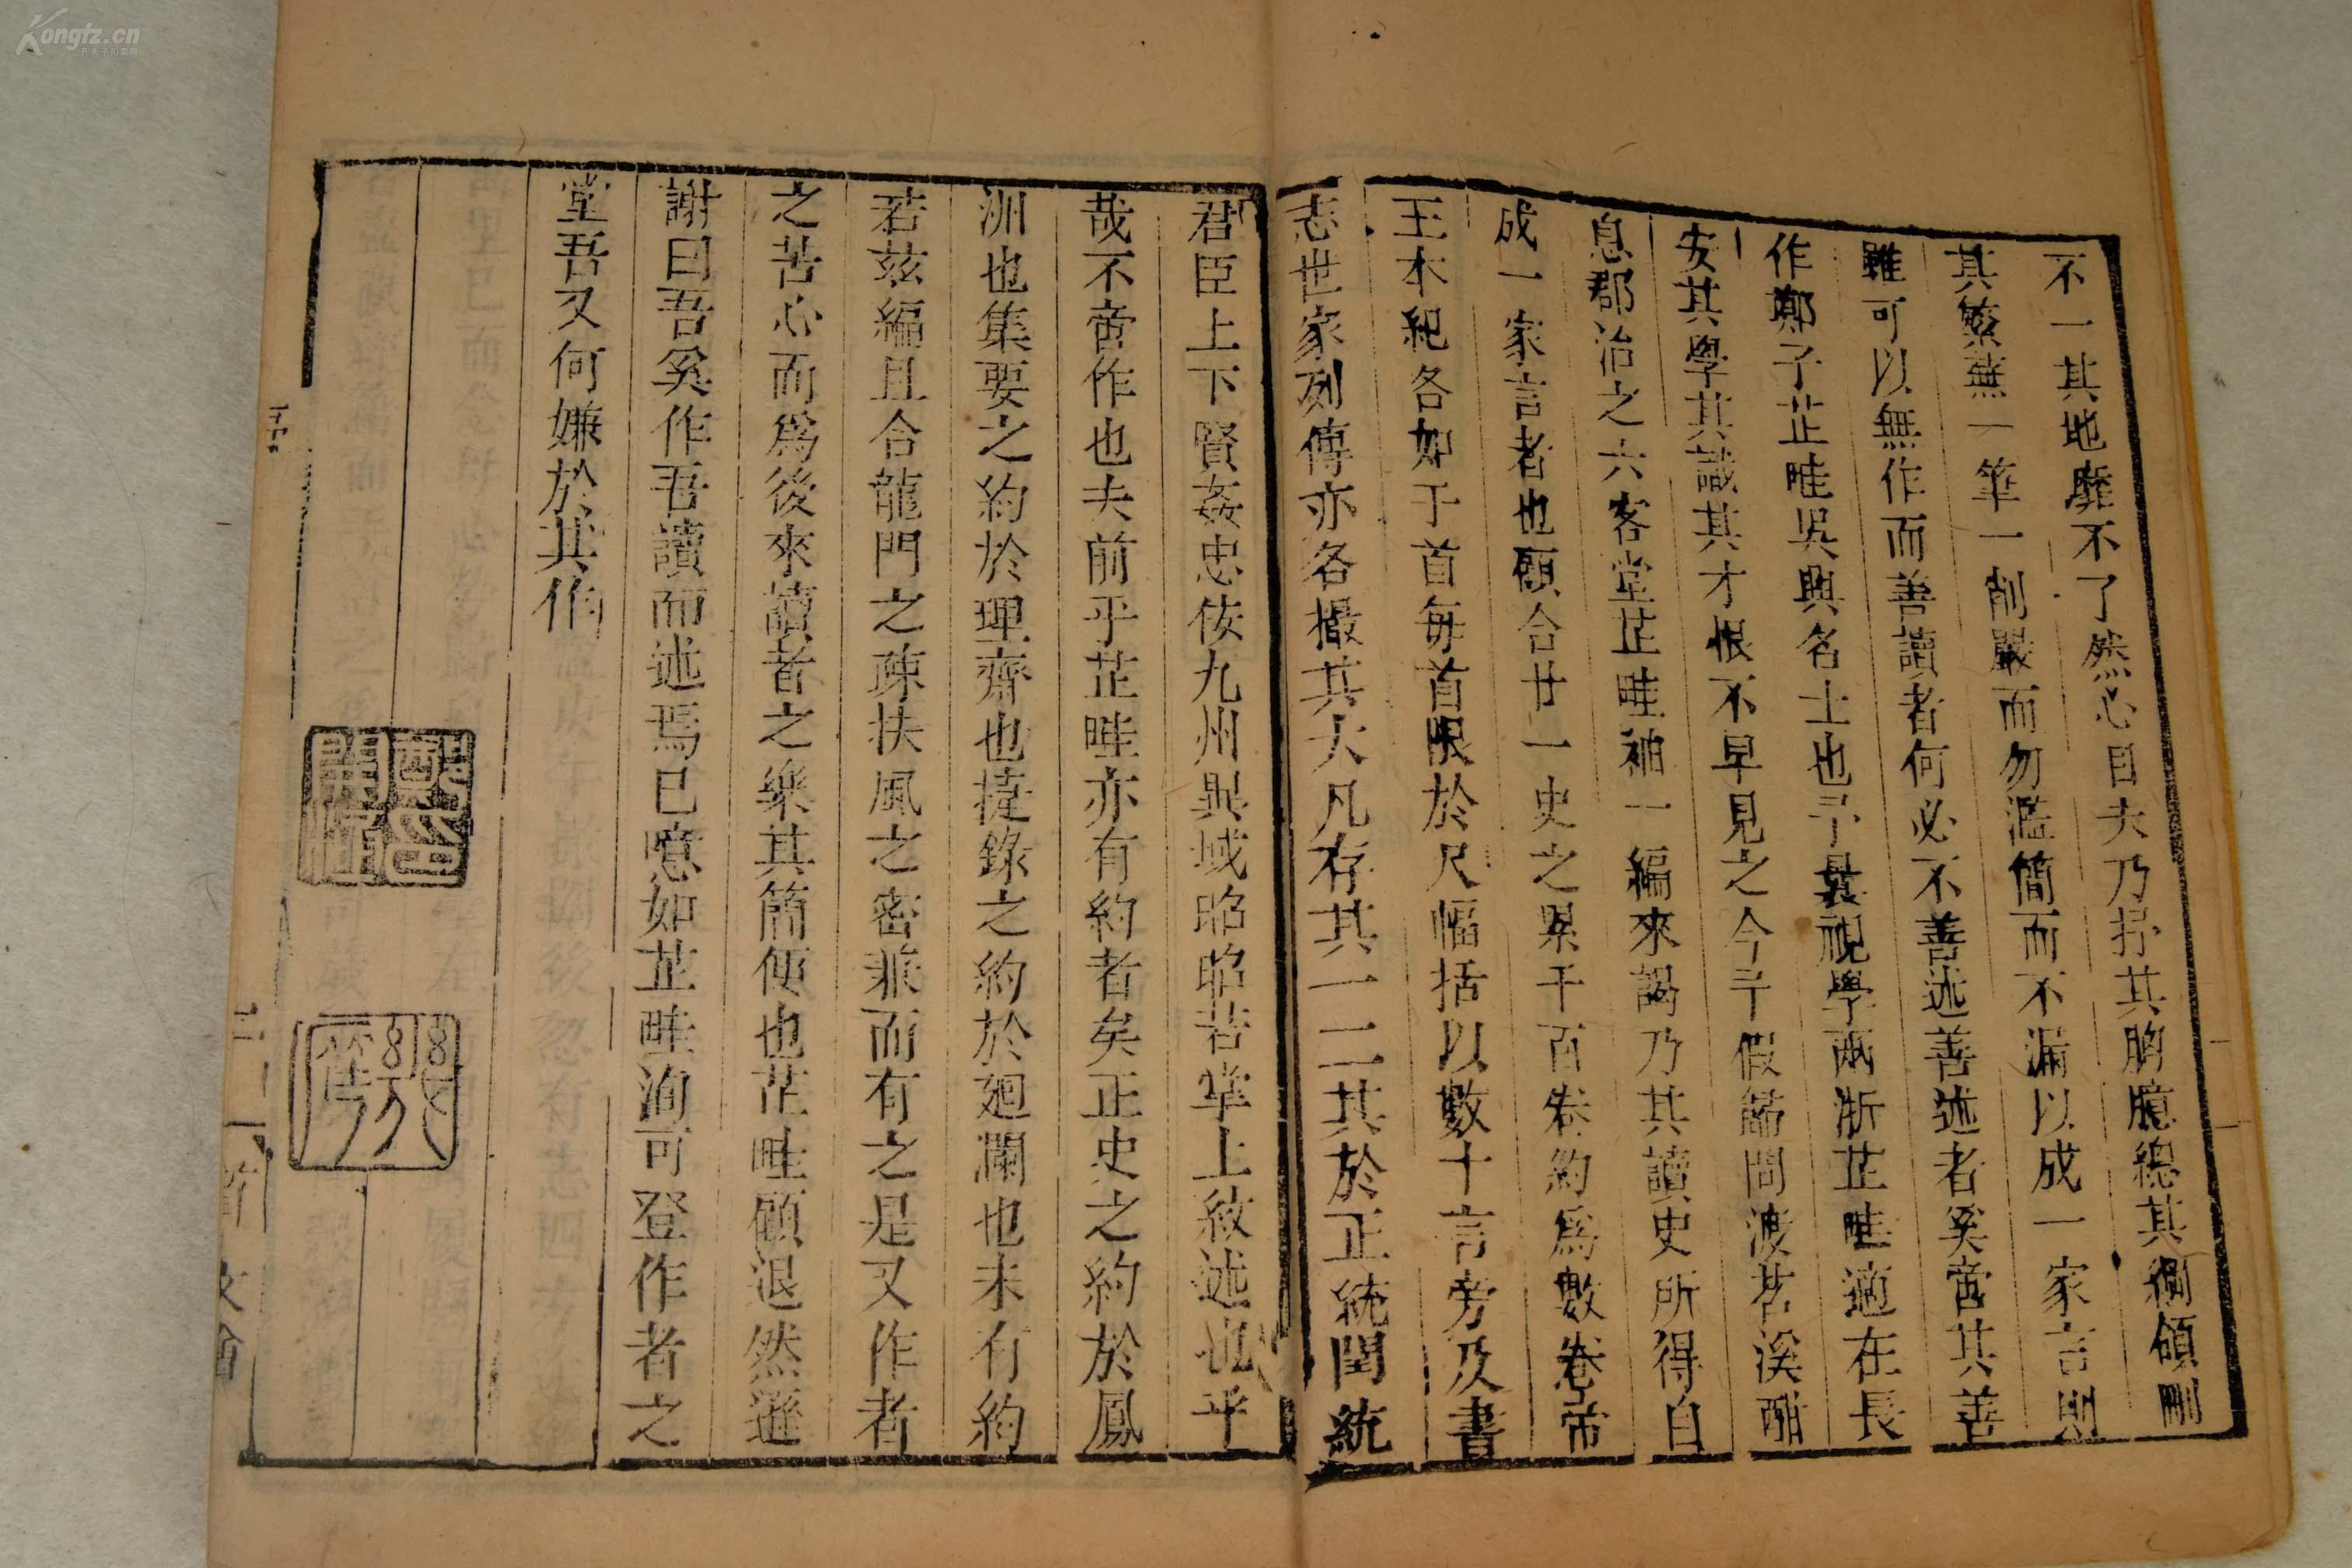 不一其地靡不了然心目夫乃抒其胸臆總其綱領刪
其繁蕪一筆一削嚴而勿濫簡而不漏以成一家言則
雖可以無作而善讀者何必不善述善述者奚啻其善
作鄭子芷畦吳興名士也予曩視學兩浙芷畦適在長
安其學其識其才恨不早見之今年假歸問渡苕溪酣
息郡治之六客堂芷畦袖一編來謁乃其讀史所得自
成一家言者也顧合廿一史之累千百卷約為數卷帝
王本紀各如干首每首限於尺幅括以數十言旁及書
志世家列傳亦各撮其大凡存其一二其於正統閏統
君臣上下賢姦忠佞九州異域昭昭若掌上紋述也乎
哉不啻作也夫前乎芷畦亦有約者矣正史之約於鳳
洲也集要之約於理齋也捷錄之約於廻瀾也未有約
若茲編且合龍門之疎扶風之密兼而有之是又作者
之苦心而爲後來讀者之樂其簡便也芷畦顧退然遜
謝曰吾奚作吾讀而述焉已噫如芷畦洵可登作者之
堂吾又何嫌於其作
Kongfz.cn